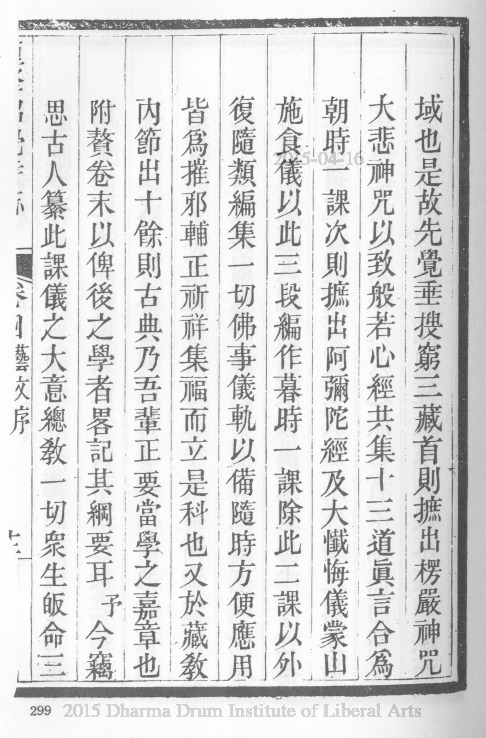 域也是故先覺垂搜窮三藏首則摭出楞嚴神咒
大悲神咒以致般若心經共集十三道眞言合爲
朝時一課次則摭出阿彌陀經及大懺悔儀蒙山
施食儀以此三段編作暮時一課除此二課以外
復隨類編集一切佛事儀軌以備隨時方便應用
皆爲摧邪輔正祈祥集福而立是科也又於藏敎
內節出十餘則古典乃吾輩正要當學之嘉章也
附贅卷末以俾後之學者畧記其綱要耳予今竊
思古人纂此課儀之大意總敎一切衆生皈命三
卷四藝文序
十二
2015-04-16
299 2015 Dharma Drum Institute of Liberal Arts